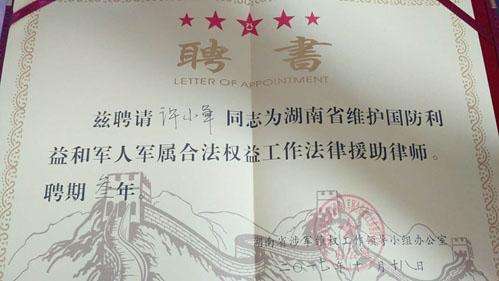 聘書
LETTER OF APPOINTMENT
兹聘请 许小军 同志为湖南省维护国防利
益和军人军属合法权益工作法律援助律师。
聘期 叁年。
湖南省涉军维权工作领导小组办公室
二〇一七年十一月十八日